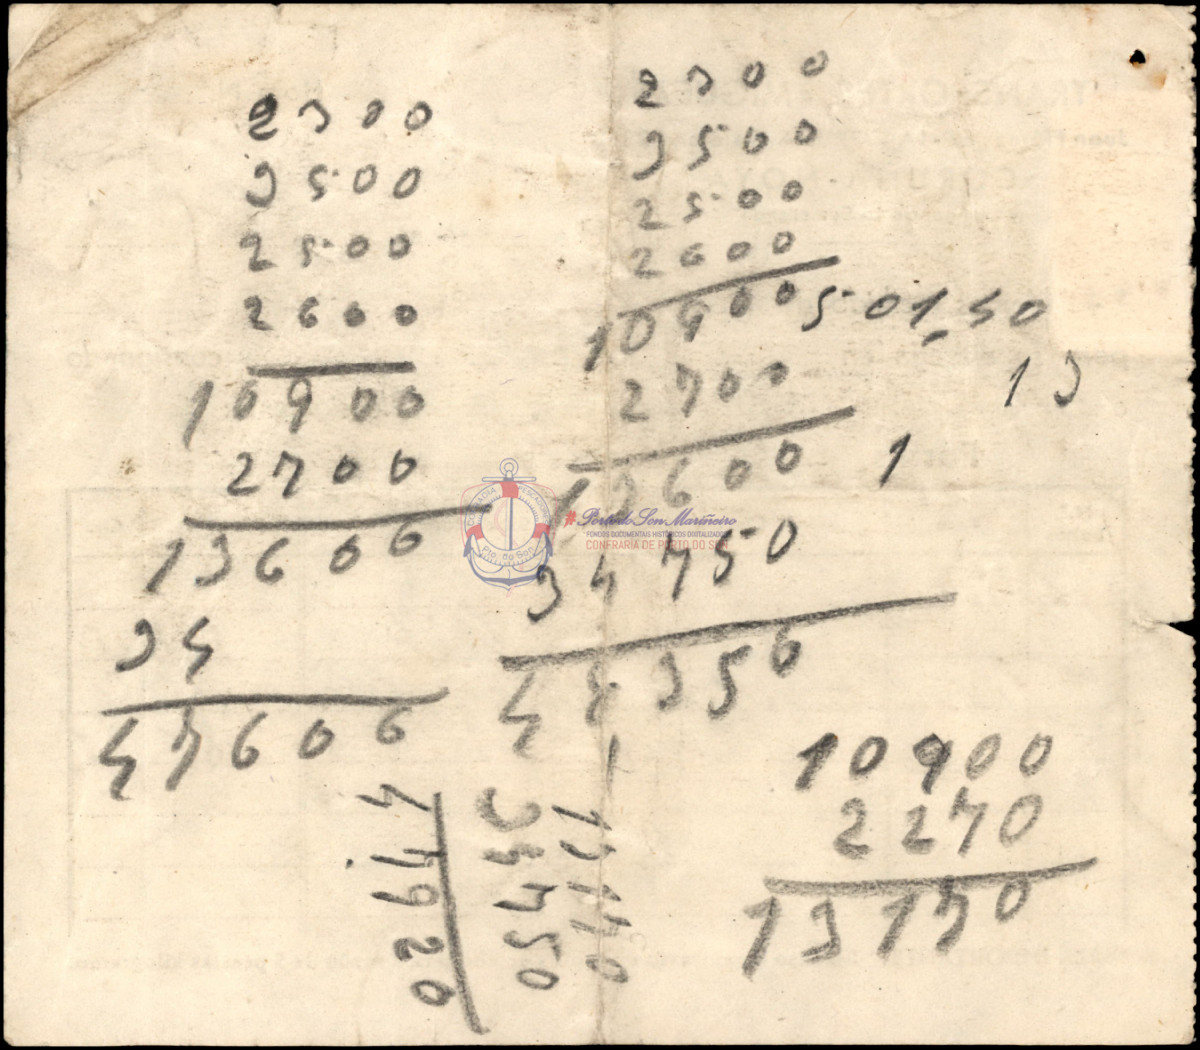 2300
3500
2500
2600
10900
2700
13600
34
47600
2300
3500
2500
2600
10900 501,50
13
2700
13600 1
34750
48350
10900
2270
13170
13170
34750
47920
Pto. do Son
#Porto do Son Mariñeiro
FONDOS DOCUMENTAIS HISTÓRICOS DIGITALIZADOS
CONFRARÍA DE PORTO DO SON